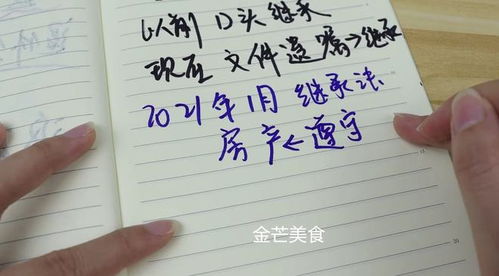 以前口头继承
现在文件遗嘱→继承
2021年1月继承法
房产←遵守
金芒美食